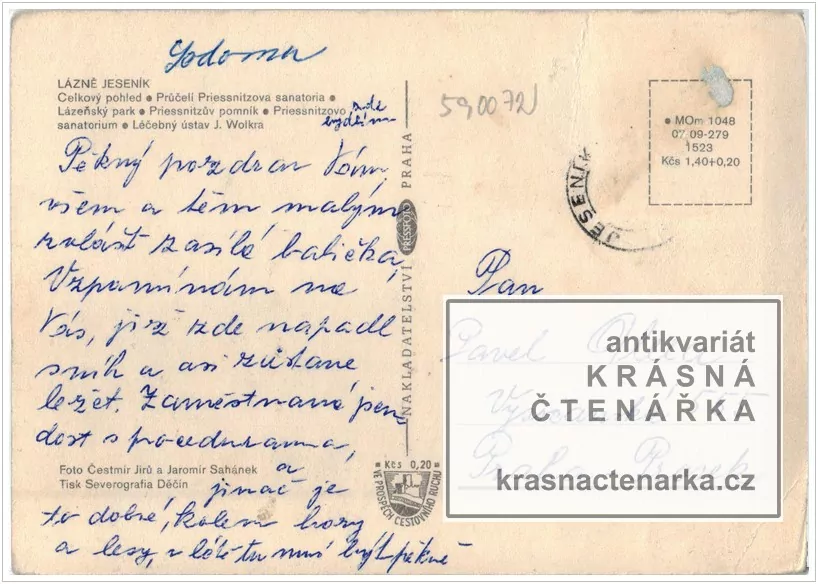 Sodoma
LÁZNĚ JESENÍK
Celkový pohled • Průčelí Priessnitzova sanatoria •
Lázeňský park • Priessnitzův pomník • Priessnitzovo
sanatorium • Léčebný ústav J. Wolkra
zde
bydlím
Pěkný pozdrav Vám
všem a těm malým
zvlášť zasílá babička,
Vzpomínám na
Vás, již zde napadl
sníh a asi zůstane
ležet. Zaměstnaná jsem
dost s procedurama,
a
jinač je
to dobré, kolem hory
a lesy, v létě tu musí být pěkně
Foto Čestmír Jirů a Jaromír Sahánek
Tisk Severografia Děčín
NAKLADATELSTVÍ PRESSFOTO PRAHA
Kčs 0,20
VE PROSPĚCH CESTOVNÍHO RUCHU
590072
• MOm 1048
07 09-279
1523
Kčs 1,40+0,20
JESENÍK
Pan
Pavel
Praha
antikvariát
KRÁSNÁ
ČTENÁŘKA
krasnactenarka.cz